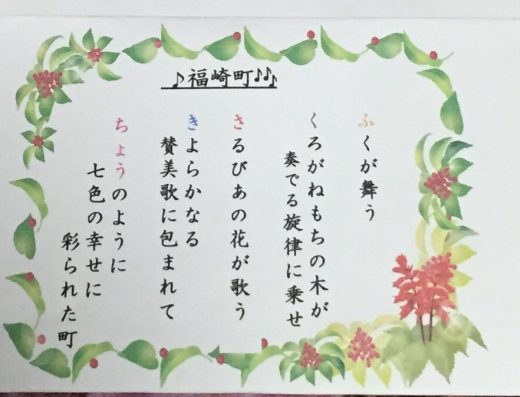 ♪福崎町♪♪♪
ふくが舞う
くろがねもちの木が
奏でる旋律に乗せ
さるびあの花が歌う
きよらかなる
賛美歌に包まれて
ちょうのように
七色の幸せに
彩られた町